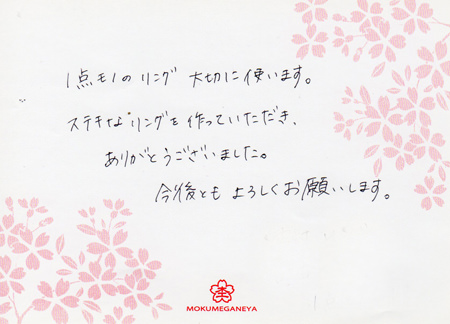 1点モノのリング 大切に使います。
ステキなリングを作っていただき、
ありがとうございました。
今後とも よろしくお願いします。
杢
MOKUMEGANEYA